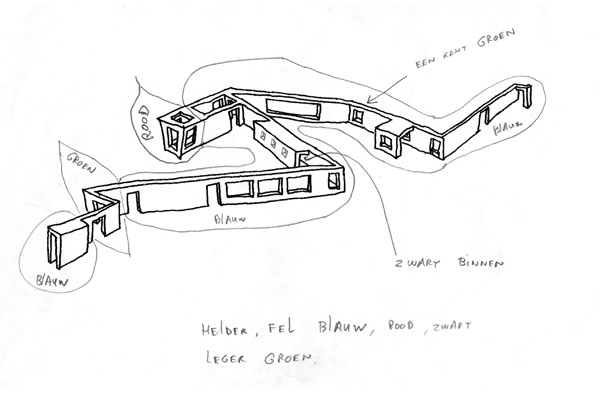 EEN KANT GROEN
ROOD
GROEN
BlAUW
BlAUW
BlAUW
ZWART BINNEN
HElDER, FEL BlAUW, ROOD, ZWART
LEGER GROEN.